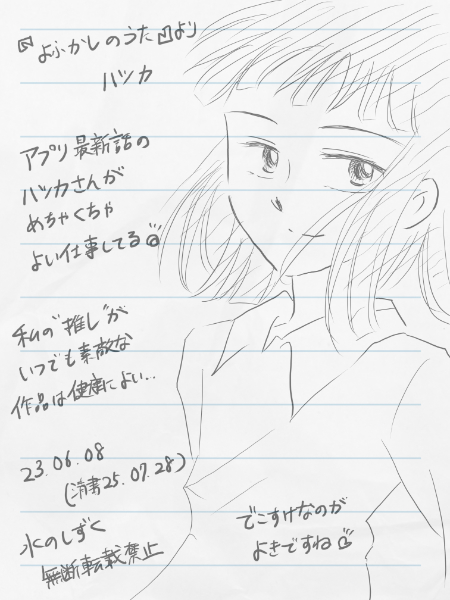 『よふかしのうた』より
ハツカ
アプリ最新話の
ハツカさんが
めちゃくちゃ
よい仕事してる
私の"推し"が
いつでも素敵な
作品は健康によい…
23.06.08
(清書25.07.28)
水のしずく
無断転載禁止
でこすけなのが
よきですね